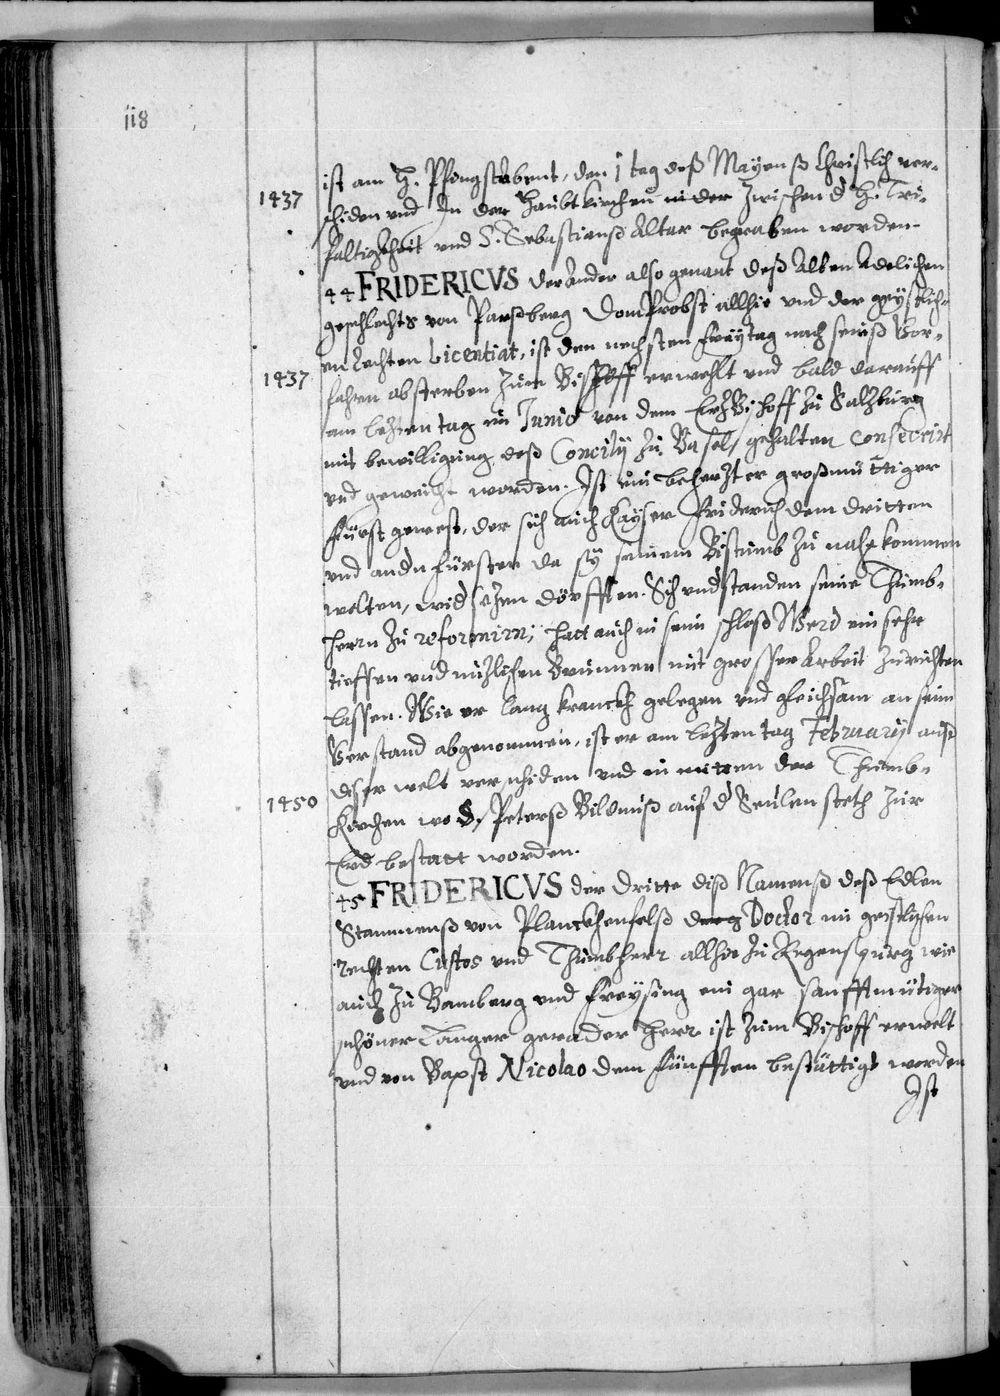 118
ist am H. Pfingstabent, den 1 tag deß Mayenß Christlich ver-
1437
schiden und In der Haubtkirchen in der Zwischen d H. Tri-
faltigkheit und S. Sebastianß Altar begraben worden.
44 FRIDERICVS der Ander also genant deß Alten Adelichen
geschlechts von Parßberg DomProbst allhie und der geistlich-
en Rechten Licentiat, ist den nechsten Freytag nach seinß Vor-
1437
fahren absterben zum Bischoff erwehlt und bald darauff
am lezten tag im Junio von dem ErzBischoff zu Salzburg
mit bewilligung deß Concily zu Basel gehalten consecrirt
und geweicht worden. Ist ein beherzter großmüttiger
Fürst gewest, der sich auch Kayser Friderich dem dritten
und andn Fürsten da sy seinem Bistumb zu nahe kommen
wolten, widsezen dörfften. Sich understanden seine Thumb-
herrn zu reformirn, hatt auch in seim schloß Werd ein sehr
tieffen und nuzlichen Brunnen mit grosser Arbeit zurichten
lassen. Wie er lang kranckh gelegen und gleichsam an seim
Verstand abgenommen, ist er am lezten tag February auß
diser welt verschiden und in mitten der Thumb-
1450
kirchen wo S. Peterß Bildniß auf d Seulen steth zur
Erd bestatt worden.
45 FRIDERICVS der Dritte diß Namenß deß Edlen
Stammenß von Planckhenfelß Doctor in geistlichen
rechten Custos und Thumbherr allhie zu Regenspurg wie
auch zu Bamberg und Freysing ein gar sanfftmütiger
schöner langer gerader Herr ist zum Bischoff erwelt
und von Bapst Nicolao dem Fünfften bestättigt worden
Ist